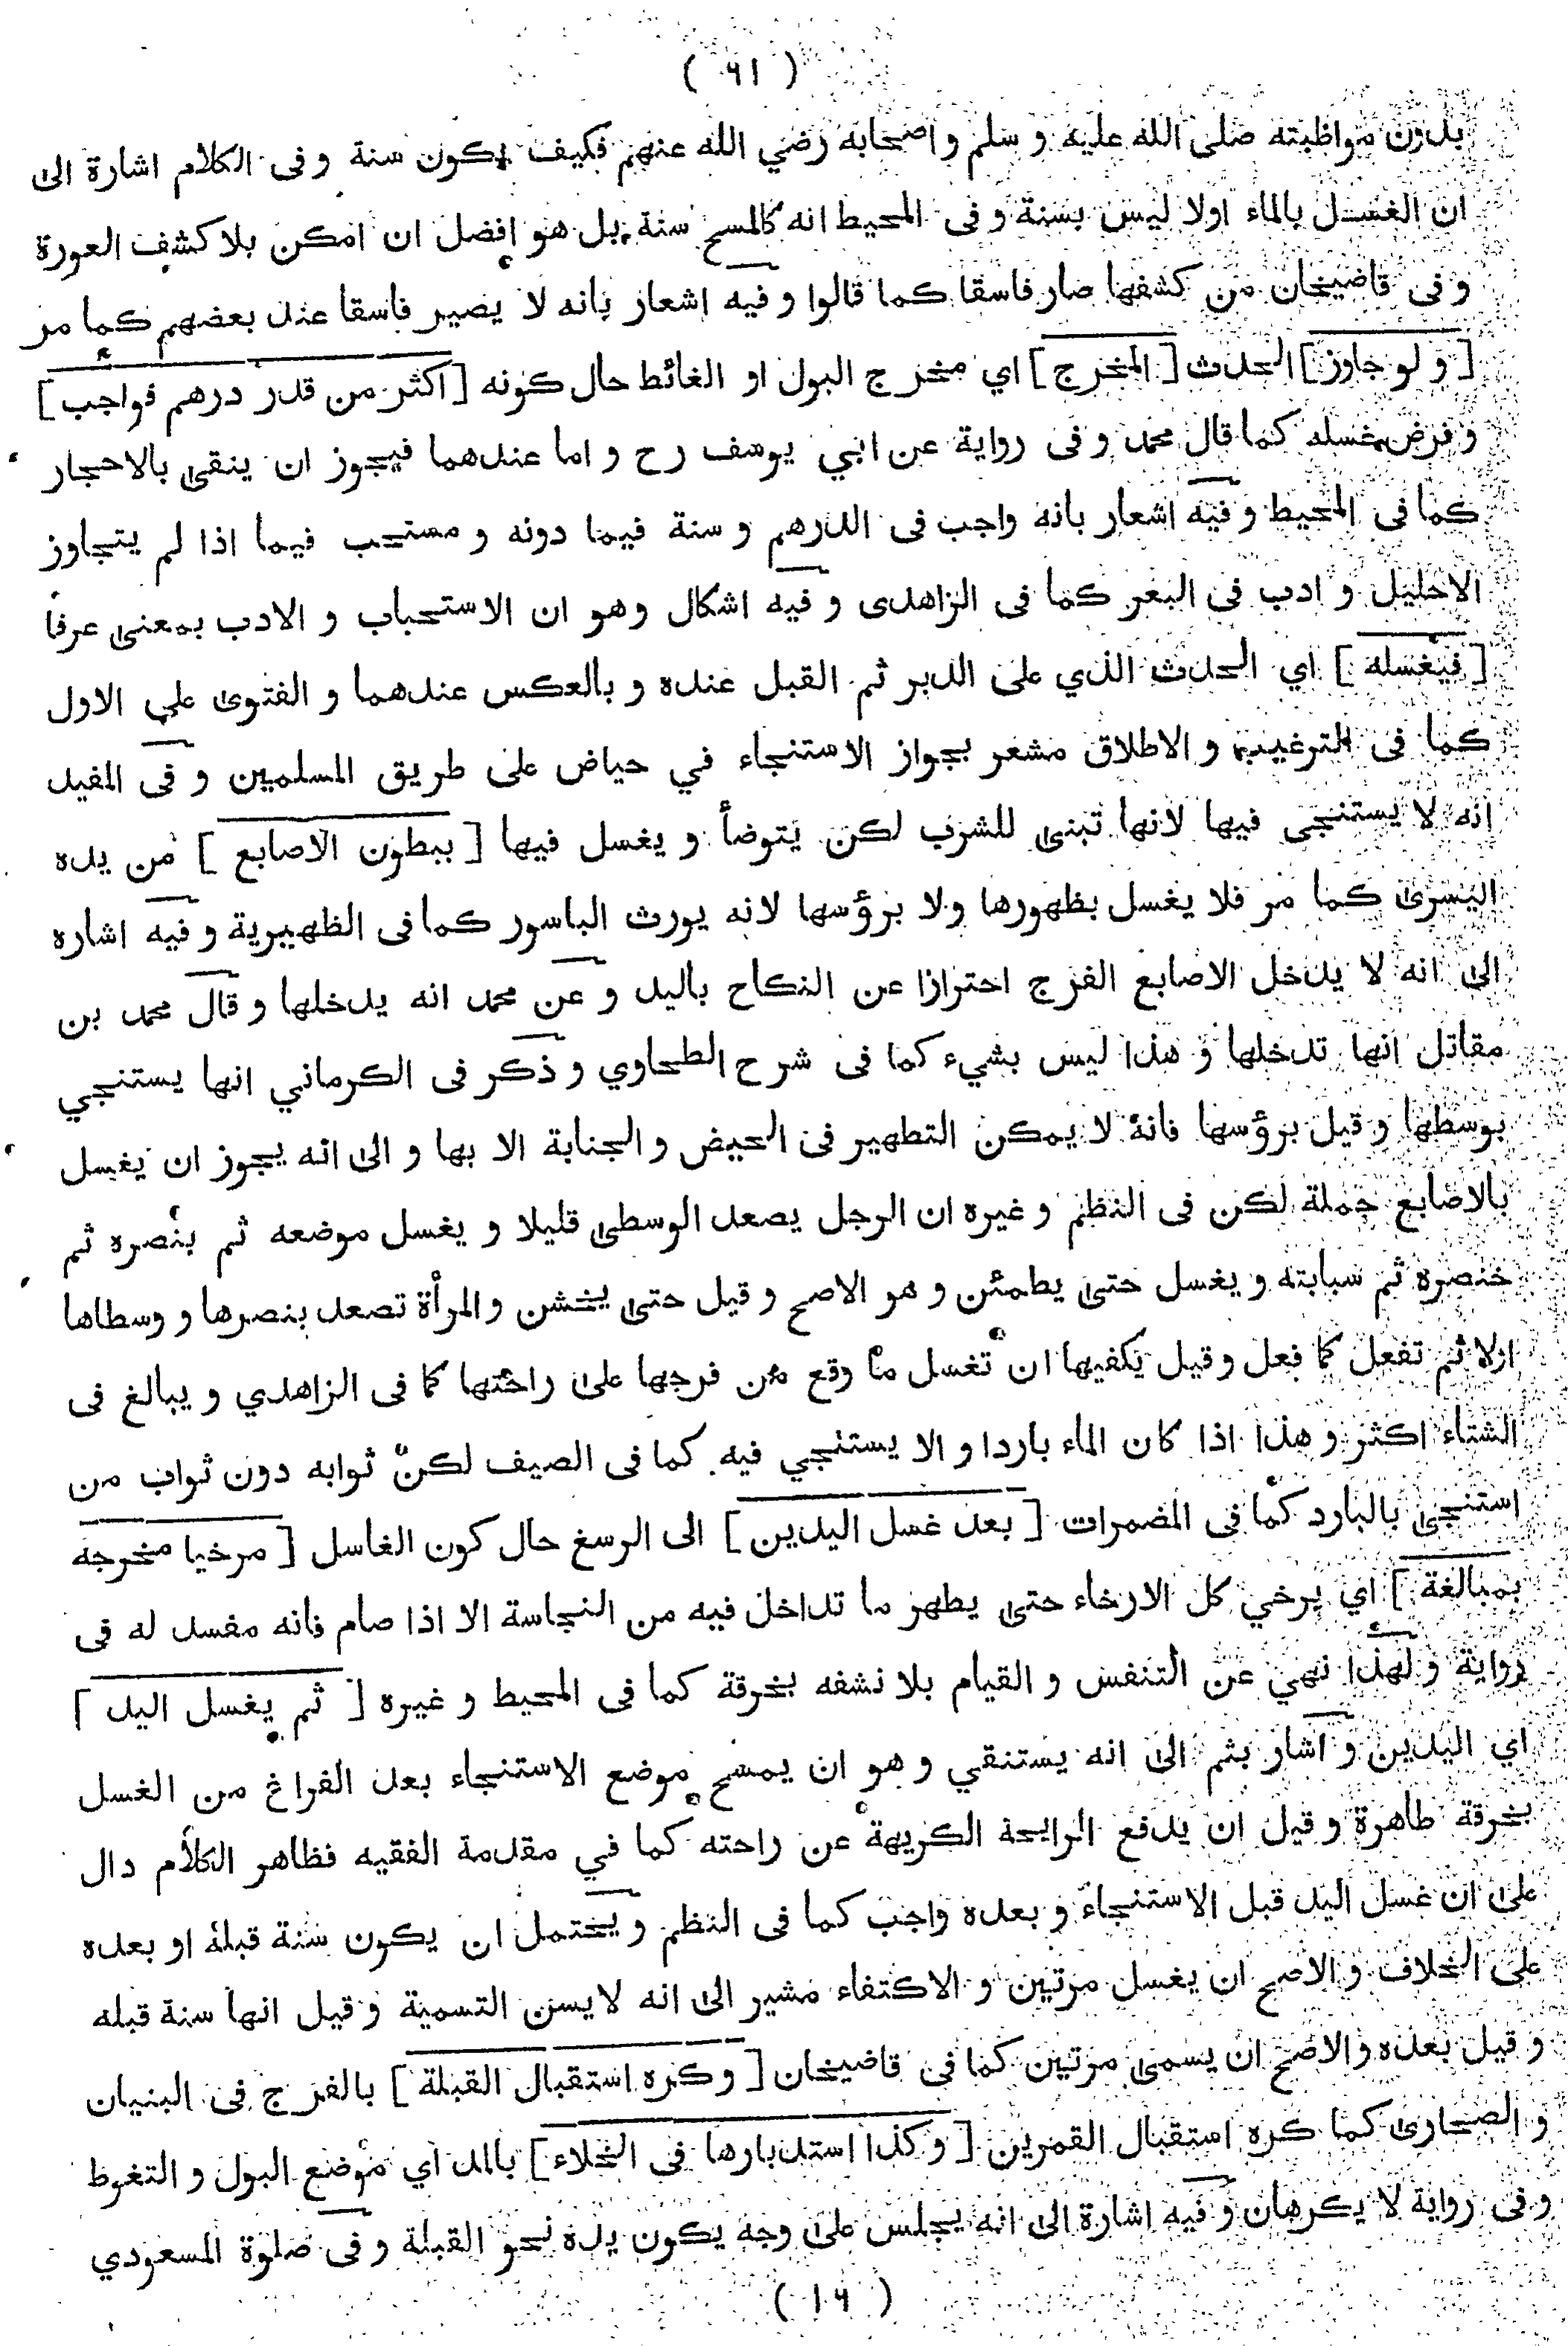 ( ٦١ )
بدون مواظبته صلى الله عليه و سلم و اصحابه رضي الله عنهم فكيف يكون سنة و فى الكلام اشارة الى
ان الغسل بالماء اولا ليس بسنة و فى المحيط انه كالمسح سنة بل هو افضل ان امكن بلا كشف العورة
و فى قاضيخان من كشفها صار فاسقا كما قالوا و فيه اشعار بانه لا يصير فاسقا عند بعضهم كما مر
[ و لو جاوز ] الحدث [ المخرج ] اي مخرج البول او الغائط حال كونه [ اكثر من قدر درهم فواجب ]
و فرض غسله كما قال محمد و فى رواية عن ابي يوسف رح و اما عندهما فيجوز ان ينقى بالاحجار
كما فى المحيط و فيه اشعار بانه واجب فى الدرهم و سنة فيما دونه و مستحب فيما اذا لم يتجاوز
الاحليل و ادب فى البعر كما فى الزاهدى و فيه اشكال وهو ان الاستحباب و الادب بمعنى عرفا
[ فيغسله ] اي الحدث الذي على الدبر ثم القبل عنده و بالعكس عندهما و الفتوى على الاول
كما فى الترغيب و الاطلاق مشعر بجواز الاستنجاء في حياض على طريق المسلمين و فى المفيد
انه لا يستنجى فيها لانها تبنى للشرب لكن يتوضأ و يغسل فيها [ ببطون الاصابع ] من يده
اليسرى كما مر فلا يغسل بظهورها ولا برؤسها لانه يورث الباسور كما فى الظهيرية و فيه اشاره
الى انه لا يدخل الاصابع الفرج احترازا عن النكاح باليد و عن محمد انه يدخلها و قال محمد بن
مقاتل انها تدخلها و هذا ليس بشيء كما فى شرح الطحاوي و ذكر فى الكرماني انها يستنجي
بوسطها و قيل برؤسها فانه لا يمكن التطهير فى الحيض و الجنابة الا بها و الى انه يجوز ان يغسل
بالاصابع جملة لكن فى النظم و غيره ان الرجل يصعد الوسطى قليلا و يغسل موضعه ثم بنصره ثم
خنصره ثم سبابته و يغسل حتى يطمئن و هو الاصح و قيل حتى يخشن و المرأة تصعد بنصرها و وسطاها
اولا ثم تفعل كما فعل و قيل يكفيها ان تغسل ما وقع من فرجها على راحتها كما فى الزاهدي و يبالغ فى
الشتاء اكثر و هذا اذا كان الماء باردا و الا يستنجي فيه كما فى الصيف لكن ثوابه دون ثواب من
استنجى بالبارد كما فى المضمرات [ بعد غسل اليدين ] الى الرسغ حال كون الغاسل [ مرخيا مخرجه
بمبالغة ] اي يرخي كل الارخاء حتى يطهر ما تداخل فيه من النجاسة الا اذا صام فانه مفسد له فى
رواية و لهذا نهي عن التنفس و القيام بلا نشفه بخرقة كما فى المحيط و غيره [ ثم يغسل اليد ]
اي اليدين و اشار بثم الى انه يستنقي و هو ان يمسح موضع الاستنجاء بعد الفراغ من الغسل
بخرقة طاهرة و قيل ان يدفع الرايحة الكريهة عن راحته كما في مقدمة الفقيه فظاهر الكلام دال
على ان غسل اليد قبل الاستنجاء و بعده واجب كما فى النظم و يحتمل ان يكون سنة قبله او بعده
على الخلاف و الاصح ان يغسل مرتين و الاكتفاء مشير الى انه لا يسن التسمية و قيل انها سنة قبله
و قيل بعده و الاصح ان يسمى مرتين كما فى قاضيخان [ و كره استقبال القبلة ] بالفرج فى البنيان
و الصحارى كما كره استقبال القمرين [ و كذا استدبارها فى الخلاء ] بالمد اي موضع البول و التغوط
و فى رواية لا يكرهان و فيه اشارة الى انه يجلس على وجه يكون يده نحو القبلة و فى صلوة المسعودي
( ١٦ )